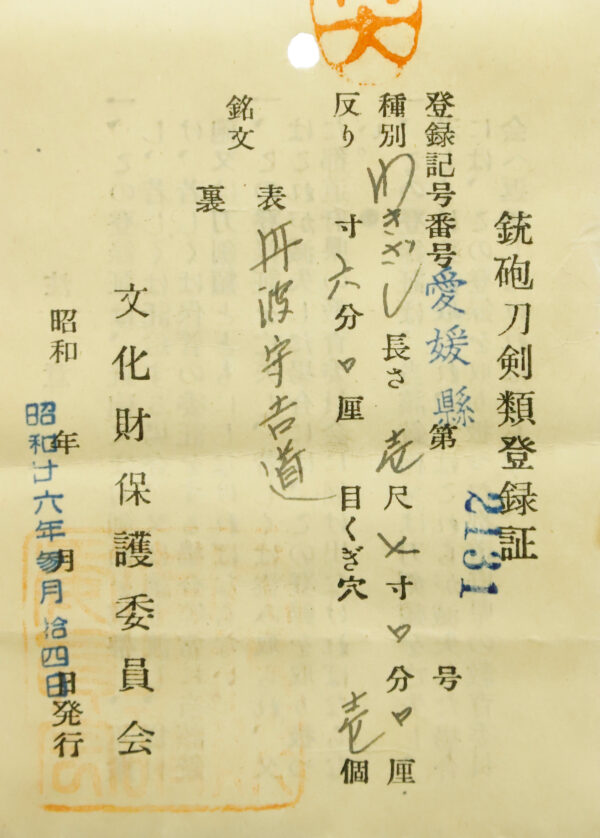 銃砲刀剣類登録証
登録記号番号 愛媛縣 第 2131 号
種別 わきざし 長さ 壱尺 寸 口分 口厘
反り 寸 六分 口厘 目くぎ穴 壱個
銘文
表 丹波守吉道
裏
文化財保護委員会
昭和 年 月 日発行
昭和廿六年参月拾四日